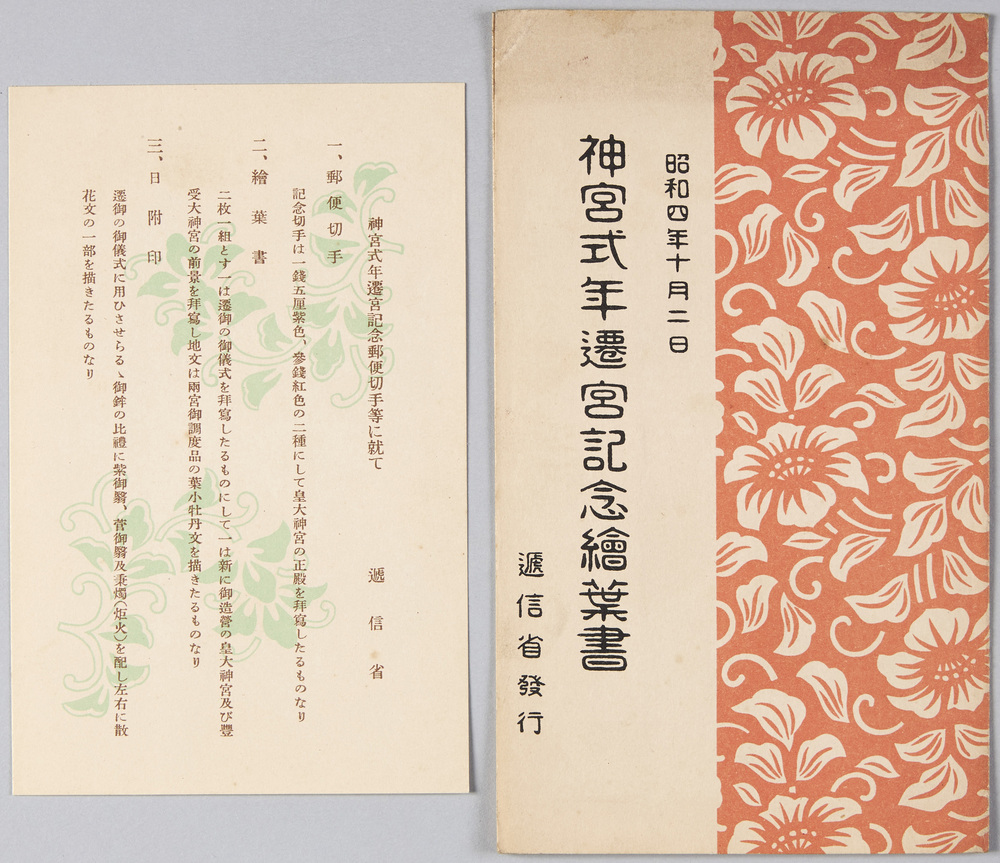 昭和四年十月二日
神宮式年遷宮記念繪葉書
遞信省發行
神宮式年遷宮記念郵便切手等に就て
遞信省
一、郵便切手
記念切手は一錢五厘紫色、參錢紅色の二種にして皇大神宮の正殿を拜寫したるものなり
二、繪葉書
二枚一組とす一は遷御の御儀式を拜寫したるものにして一は新に御造營の皇大神宮及び豐
受大神宮の前景を拜寫し地文は兩宮御調度品の葉小牡丹文を描きたるものなり
三、日附印
遷御の御儀式に用ひさせらるゝ御鉾の比禮に紫御翳、菅御翳及秉燭(炬火)を配し左右に散
花文の一部を描きたるものなり